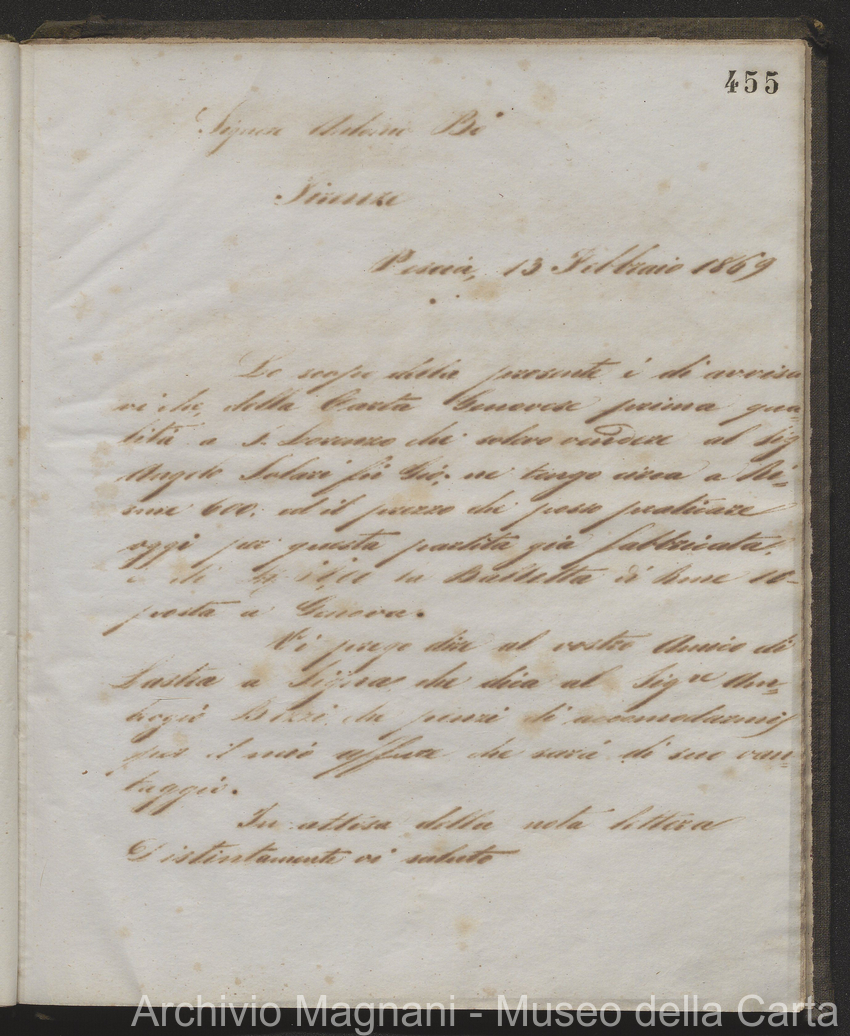 455
Signore Antonio Bò
Firenze
Pescia, 13 Febbraio 1869
Lo scopo della presente è di avvisar
vi che della Carta Genovese prima qua=
lità a S. Lorenzo che solevo vendere al Sig
Angelo Solari fù Gio: ne tengo circa a Ri=
sme 600. ed il prezzo che posso praticare
oggi per questa partita già fabbricata,
è di la Balletta di Risme 10=
posta a Genova.
Vi prego dire al vostro Amico di
Lastra a Signa che dica al Sigre Am=
brogio che pensi di accomodarmi
per il mio affare che sarà di suo van=
taggio.
In attesa della nota lettera
Distintamente vi saluto
Archivio Magnani - Museo della Carta